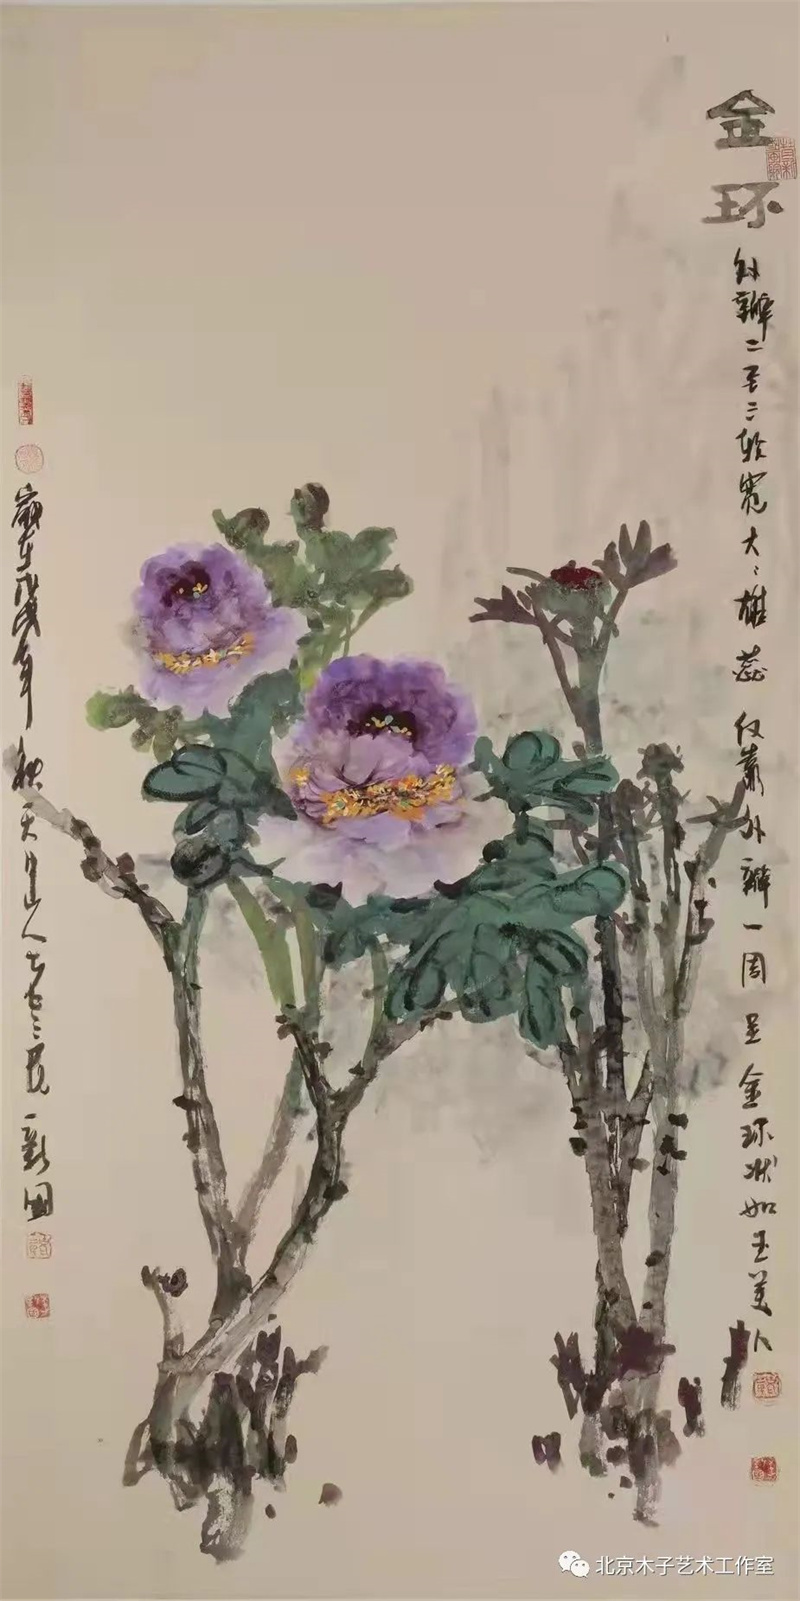 金环
外瓣二至三轮宽大、雄蕊仅靠外瓣一周呈金环状如玉美人
岁在戊戌年秋天月山人七十三叟一新图
北京木子艺术工作室